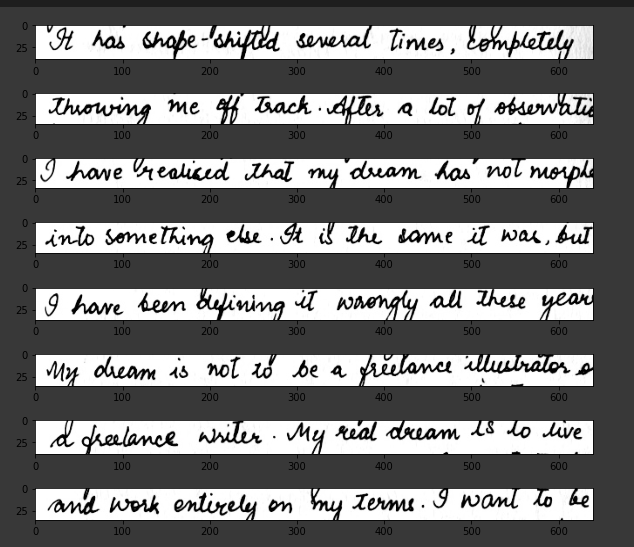 0 It has shape-shifted several times, completely
25
0 100 200 300 400 500 600
0 throwing me off track. After a lot of observati
25
0 100 200 300 400 500 600
0 I have realised that my dream has not morphe
25
0 100 200 300 400 500 600
0 into something else. It is the same it was, but
25
0 100 200 300 400 500 600
0 I have been defining it wrongly all these year
25
0 100 200 300 400 500 600
0 My dream is not to be a freelance illustrator o
25
0 100 200 300 400 500 600
0 a freelance writer. My real dream is to live
25
0 100 200 300 400 500 600
0 and work entirely on my terms. I want to be
25
0 100 200 300 400 500 600